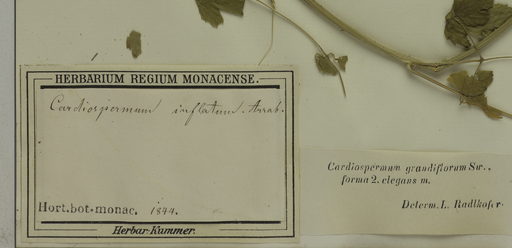 HERBARIUM REGIUM MONACENSE.
Cardiospermum inflatum. Arrab.
Hort. bot. monac. 1844.
Herbar. Kummer.
Cardiospermum grandiflorum Sw..
forma 2. elegans m.
Determ. L. Radlkofer